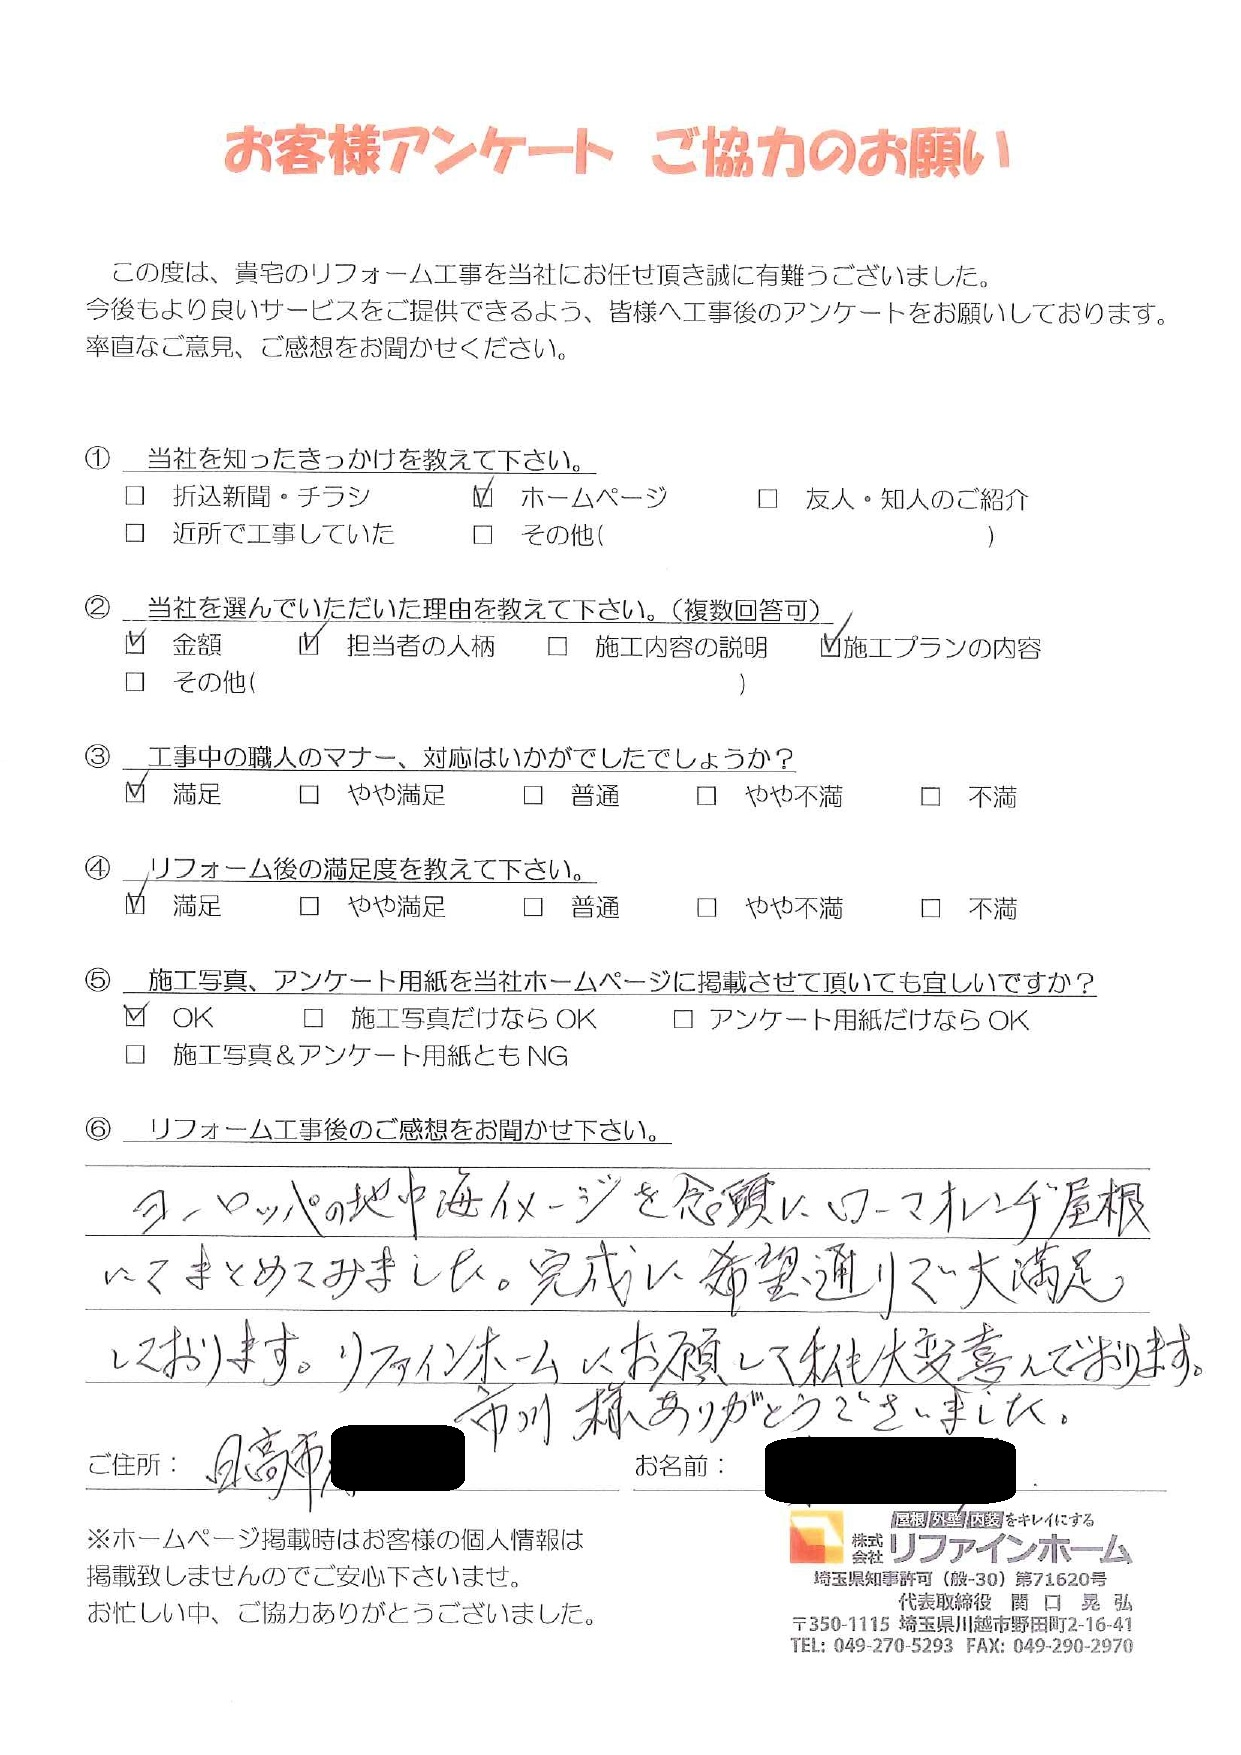 お客様アンケート ご協力のお願い
この度は、貴宅のリフォーム工事を当社にお任せ頂き誠に有難うございました。
今後もより良いサービスをご提供できるよう、皆様へ工事後のアンケートをお願いしております。
率直なご意見、ご感想をお聞かせください。
① 当社を知ったきっかけを教えて下さい。
□ 折込新聞・チラシ ☑ ホームページ □ 友人・知人のご紹介
□ 近所で工事していた □ その他( )
② 当社を選んでいただいた理由を教えて下さい。(複数回答可)
☑ 金額 ☑ 担当者の人柄 □ 施工内容の説明 ☑施工プランの内容
□ その他( )
③ 工事中の職人のマナー、対応はいかがでしたでしょうか？
☑ 満足 □ やや満足 □ 普通 □ やや不満 □ 不満
④ リフォーム後の満足度を教えて下さい。
☑ 満足 □ やや満足 □ 普通 □ やや不満 □ 不満
⑤ 施工写真、アンケート用紙を当社ホームページに掲載させて頂いても宜しいですか？
☑ OK □ 施工写真だけなら OK □ アンケート用紙だけなら OK
□ 施工写真＆アンケート用紙とも NG
⑥ リフォーム工事後のご感想をお聞かせ下さい。
ヨーロッパの地中海イメージを念頭にローマオレンヂ屋根
にてまとめてみました。完成に希望通りで大満足
しております。リファインホームにお願して私も大変喜んでおります。
市川様ありがとうございました。
ご住所： 日高市 お名前：
※ホームページ掲載時はお客様の個人情報は
掲載致しませんのでご安心下さいませ。
お忙しい中、ご協力ありがとうございました。
屋根/外壁/内装をキレイにする
株式会社 リファインホーム
埼玉県知事許可（般-30）第71620号
代表取締役 関口 晃弘
〒350-1115 埼玉県川越市野田町2-16-41
TEL: 049-270-5293 FAX: 049-290-2970